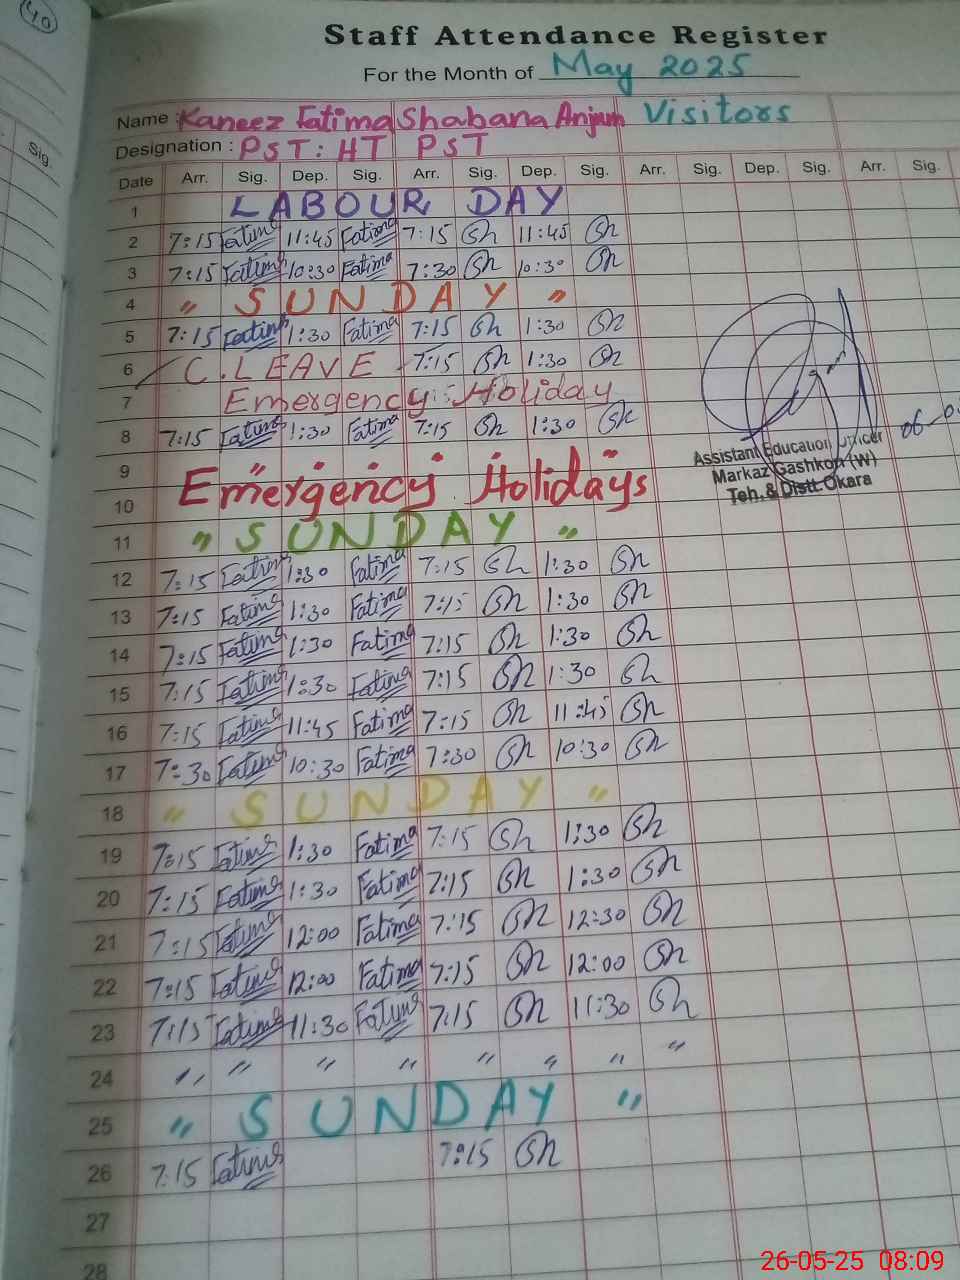 40
Sig.
Staff Attendance Register
For the Month of May 2025
Name : Kaneez Fatima Shabana Anjum Visitors
Designation : PST : HT PST
Date Arr. Sig. Dep. Sig. Arr. Sig. Dep. Sig. Arr. Sig. Dep. Sig. Arr. Sig.
1 LABOUR DAY
2 7:15 Fatima 11:45 Fatima 7:15 Sh 11:45 Sh
3 7:15 Fatima 10:30 Fatima 7:30 Sh 10:30 Sh
4 " SUNDAY "
5 7:15 Fatima 1:30 Fatima 7:15 Sh 1:30 Sh
6 C.LEAVE 7:15 Sh 1:30 Sh
7 Emergency Holiday
8 7:15 Fatima 1:30 Fatima 7:15 Sh 1:30 Sh
Assistant Education Officer
Markaz Gashkori (W)
Teh. & Distt. Okara
9
10 Emergency Holidays
11 " SUNDAY "
12 7:15 Fatima 1:30 Fatima 7:15 Sh 1:30 Sh
13 7:15 Fatima 1:30 Fatima 7:15 Sh 1:30 Sh
14 7:15 Fatima 1:30 Fatima 7:15 Sh 1:30 Sh
15 7:15 Fatima 1:30 Fatima 7:15 Sh 1:30 Sh
16 7:15 Fatima 11:45 Fatima 7:15 Sh 11:45 Sh
17 7:30 Fatima 10:30 Fatima 7:30 Sh 10:30 Sh
18 " SUNDAY "
19 7:15 Fatima 1:30 Fatima 7:15 Sh 1:30 Sh
20 7:15 Fatima 1:30 Fatima 7:15 Sh 1:30 Sh
21 7:15 Fatima 12:00 Fatima 7:15 Sh 12:30 Sh
22 7:15 Fatima 12:00 Fatima 7:15 Sh 12:00 Sh
23 7:15 Fatima 11:30 Fatima 7:15 Sh 11:30 Sh
24 " " " " " " " "
25 " SUNDAY "
26 7:15 Fatima 7:15 Sh
27
28
26-05-25 08:09